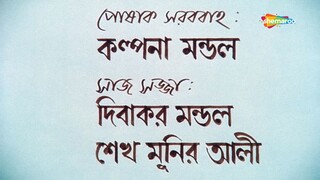 shemaroo
পোষাক সরবরাহ :
কল্পনা মন্ডল
সাজ সজ্জা :
দিবাকর মন্ডল
শেখ মুনির আলী